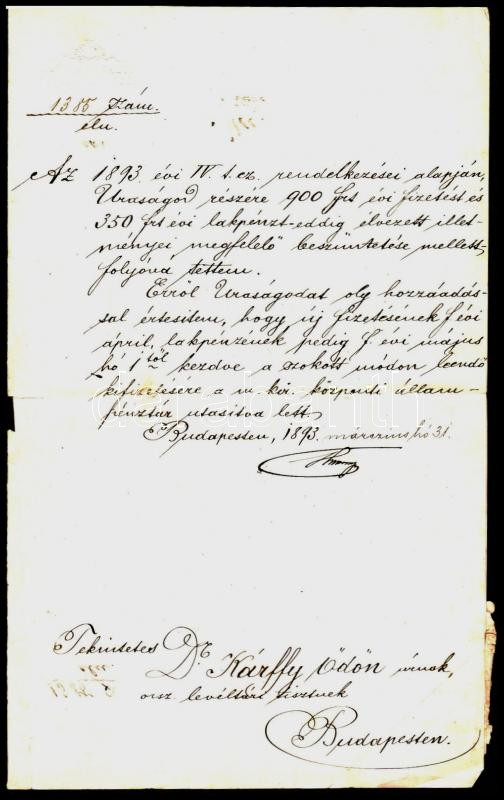 1385 szám.
eln.
Az 1893. évi IV. t. cz. rendelkezései alapján,
Uraságod részére 900 frt évi fizetést és
350 frt évi lakpénzt-eddig élvezett illet-
ményei megfelelő beszüntetése mellett,
folyóvá tettem.
Erről Uraságodat oly hozzáadás-
sal értesitem, hogy új fizetésének f. évi
április, lakpénzének pedig f. évi május
hó 1től kezdve a szokott módon leendő
kifizetésére a m. kir. központi állam-
pénztár utasitva lett.
Budapesten, 1893. márczius hó 31.
Tekintetes
Dr. Kárffy Ödön úrnak,
orsz. levéltári tisztnek
Budapesten.